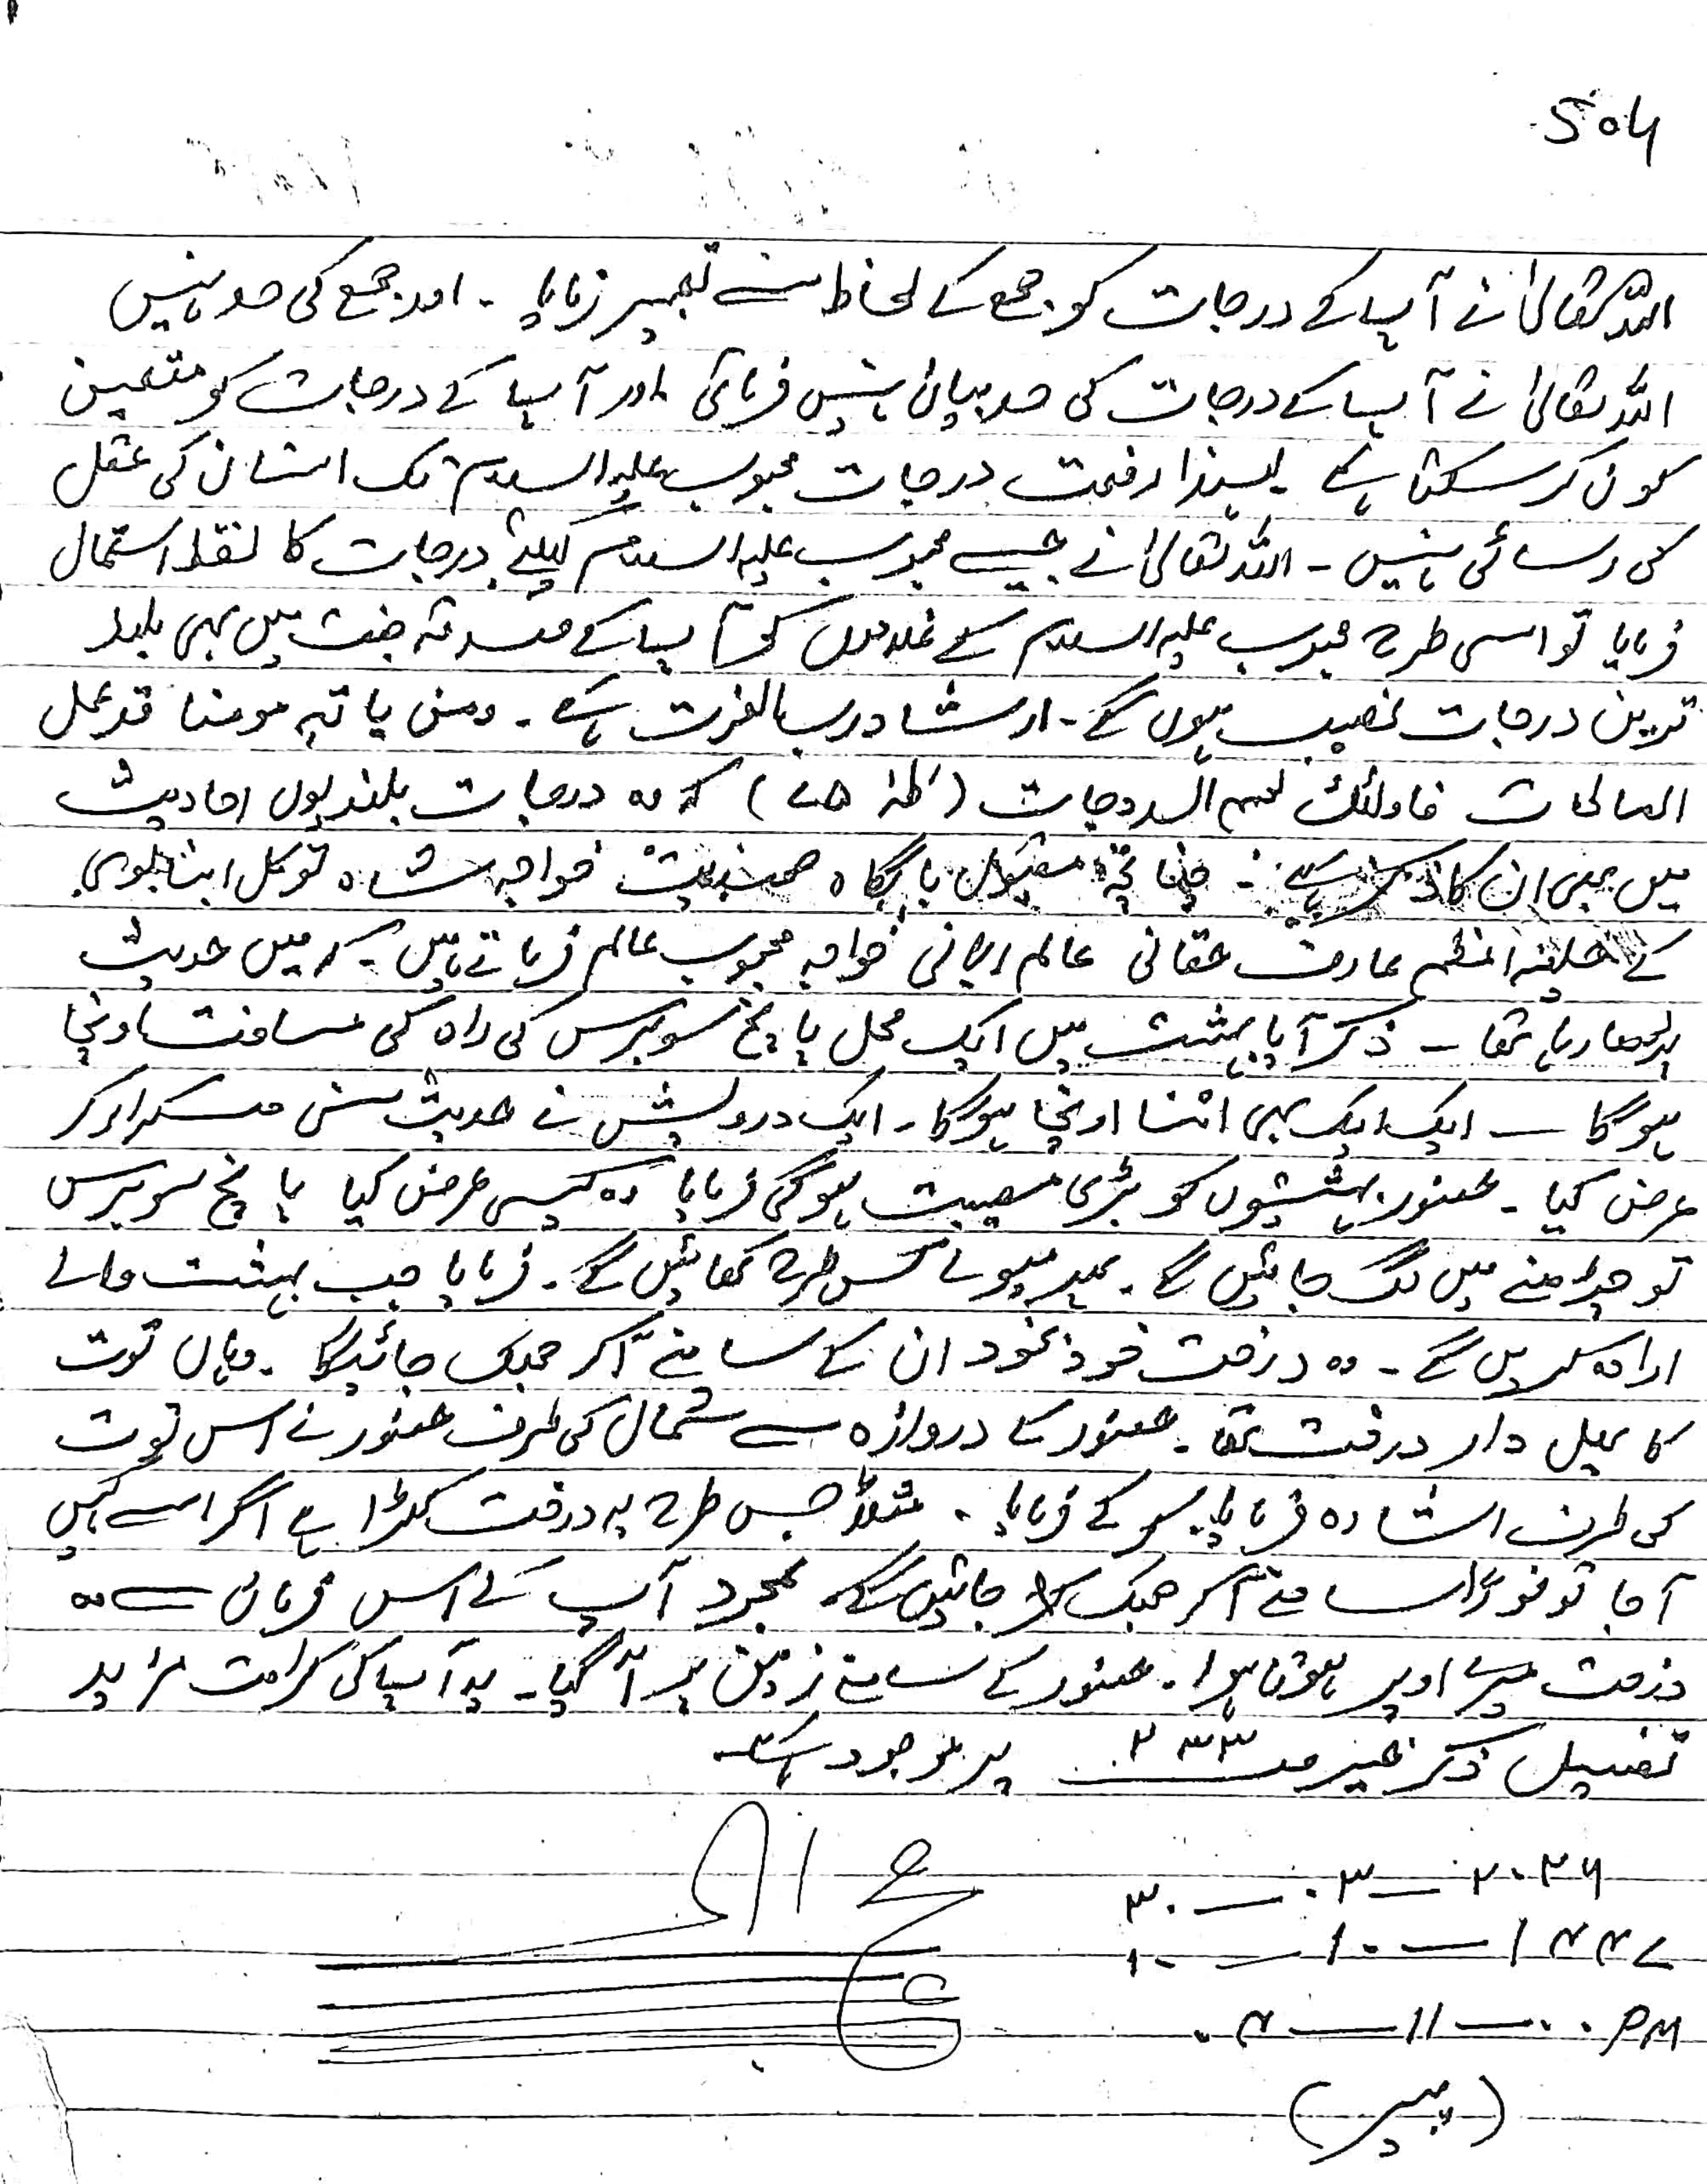 504
اللہ تعالیٰ نے آپ کے درجات کو جمع کے لحاظ سے تعبیر فرمایا ۔ اور جمع کی حد نہیں
اللہ تعالیٰ نے آپ کے درجات کی حد بیان نہیں فرمائی اور آپ کے درجات کو متعین
کون کر سکتا ہے لہذا رفعت درجات محبوب علیہ السلام تک انسان کی عقل
کی رسائی نہیں ۔ اللہ تعالیٰ نے جیسے محبوب علیہ السلام کیلئے درجات کا لفظ استعمال
فرمایا تو اسی طرح محبوب علیہ السلام کے غلاموں کو آپ کے صدقہ جنت میں بھی بلند
ترین درجات نصیب ہوں گے ۔ ارشاد رب العزت ہے ۔ ومن یاتہ مومنا قد عمل
الصالحات فاولئک لھم الدرجات (طہٰ ۷۵) کہ وہ درجات بلند ہوں احادیث
میں بھی ان کا ذکر ہے ۔ چنانچہ مقبول بارگاہ صمدیت خواجہ شاہ توکل انبالوی
کے خلیفہ اعظم عارف حقانی عالم ربانی خواجہ محبوب عالم فرماتے ہیں ۔ کہ میں حدیث
پڑھا رہا تھا ۔ ذکر آیا بہشت میں ایک محل پانچ سو برس کی راہ کی مسافت اونچا
ہوگا ۔ ایک ایک بھی اتنا اونچا ہوگا ۔ ایک درویش نے حدیث سنی مسکرا کر
عرض کیا ۔ حضور بہشتیوں کو بڑی مصیبت ہوگی فرمایا وہ کیسی عرض کیا پانچ سو برس
تو چڑھنے میں لگ جائیں گے ۔ پھر میوے کس طرح کھائیں گے ۔ فرمایا جب بہشت والے
ارادہ کریں گے ۔ وہ درخت خود بخود ان کے سامنے آکر جھک جائیگا ۔ وہاں توت
کا پھل دار درخت تھا ۔ حضور کے دروازہ سے شمال کی طرف حضور نے اس توت
کی طرف اشارہ فرمایا ہو کے فرمایا ۔ مثلاً جس طرح یہ درخت کھڑا ہے اگر اسے کہیں
آجا تو فوراً سامنے آکر جھک جائیں گے بمجرد آپ کے اس فرمان سے وہ
درخت اوپر ہوتا ہوا ۔ حضور کے سامنے زمین پر آگیا ۔ یہ آپ کی کرامت مزید
تفصیل ذکر خیر صـ ۲۳۳ پر موجود ہے ۔
۳۰ — ۰۳ — ۲۰۲۶
۱۰ — ۱۰ — ۱۴۴۷
۰۴ — ۱۱ — ۰۰ PM
(پیر)